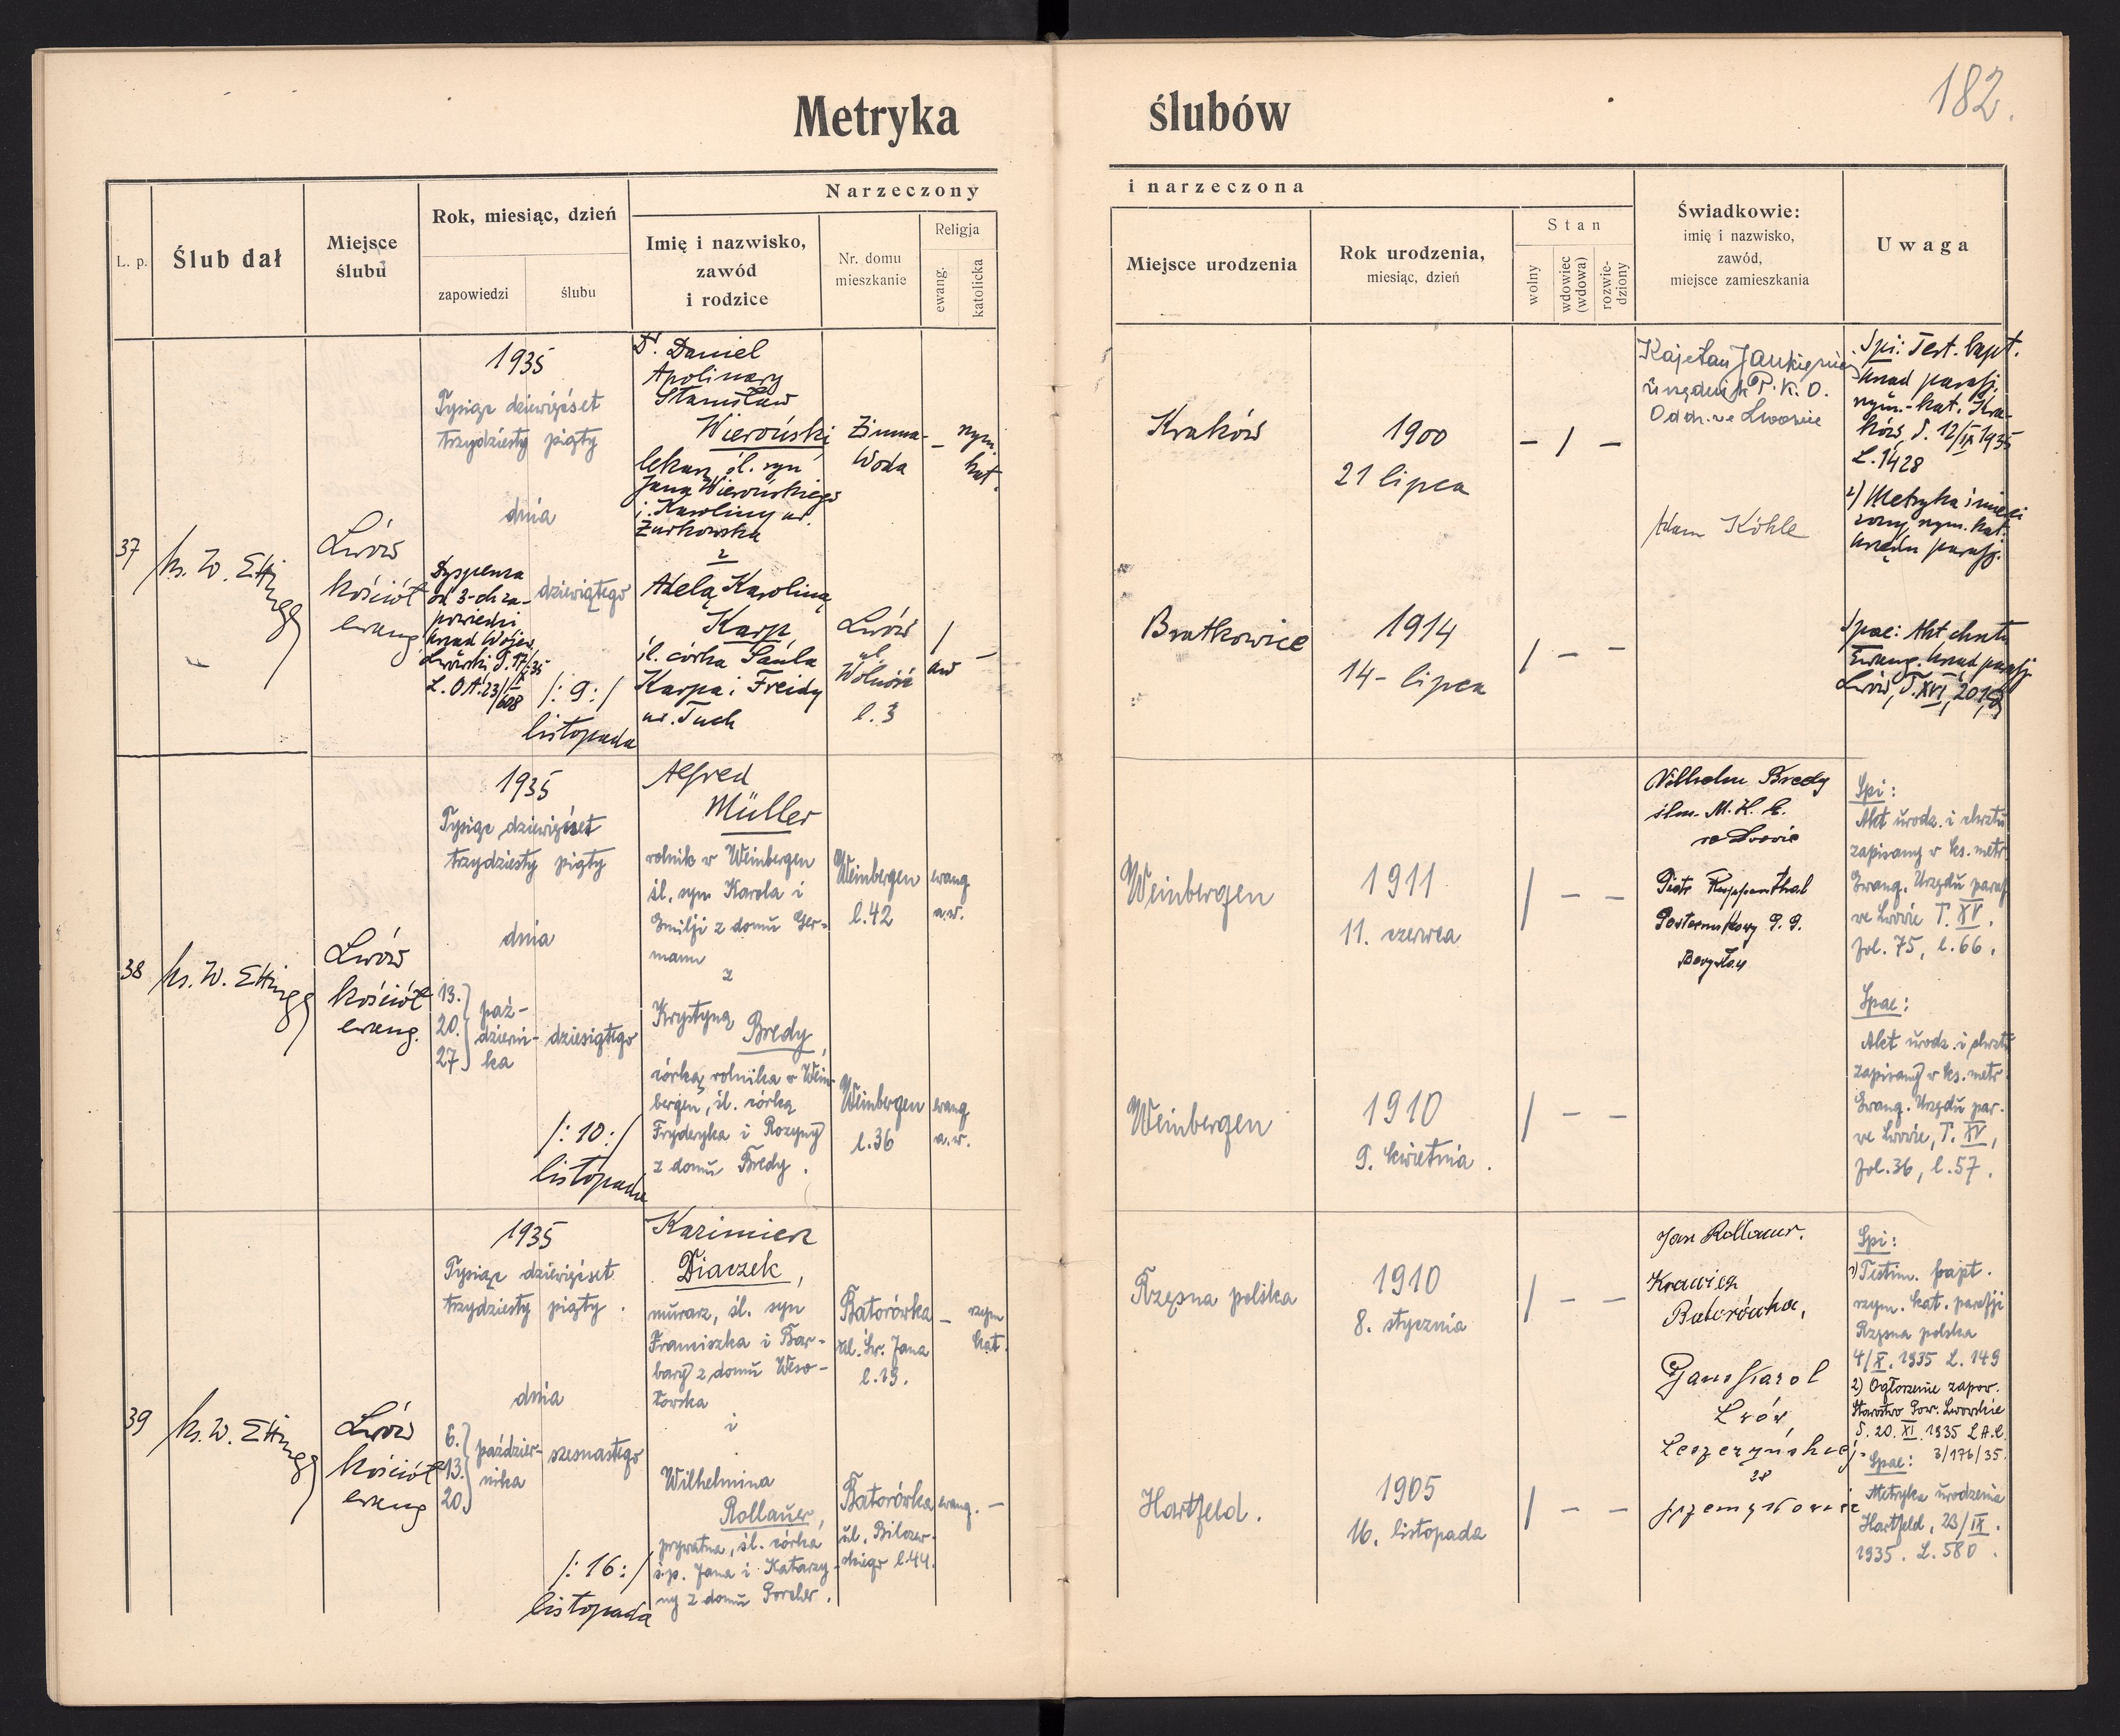 182.
Metryka ślubów
L. p.
Ślub dał
Miejsce
ślubu
Rok, miesiąc, dzień
zapowiedzi
ślubu
Narzeczony
Imię i nazwisko,
zawód
i rodzice
Nr. domu
mieszkanie
Religja
ewang.
katolicka
i narzeczona
Miejsce urodzenia
Rok urodzenia,
miesiąc, dzień
Stan
wolny
wdowiec
(wdowa)
rozwie-
dziony
Świadkowie:
imię i nazwisko,
zawód,
miejsce zamieszkania
Uwaga
37
ks. W. Ettinger
Lwów
kościół
ewang.
1935
Tysiąc dziewięćset
trzydziesty piąty
dnia
Dyspensa
od 3-ch za-
powiedzi
Urząd Wojew.
Lwowski
dziewiątego
/: 9 :/
listopada
Dr. Daniel
Apolinary
Stanisław
Wieroński
lekarz, śl. syn
Jana Wierońskiego
i Karoliny ur.
Żurkowska
z
Adelą Karoliną
Karp
śl. córka Saula
Karpa i Freidy
ur. Tuch
Zimna-
Woda
Lwów
ul.
Wolność
l. 3
– rzym.
kat.
/ –
aw
Kraków
1900
21 lipca
– / –
Bratkowice
1914
14- lipca
/ – –
Kajetan Jankiewicz
urzędnik P. K. O.
Oddz. we Lwowie
Adam Köhle
Spi: Test. bapt.
urząd parafj.
rzym.-kat. Kra-
ków, d. 12/IX 1935
L. 1428
2) Metryka
rzym. kat.
urzędu parafj.
Spae: Akt chrztu
Ewang. Urząd parafj.
Lwów, T. XVI,
38
ks. W. Ettinger
Lwów
kościół
ewang.
1935
Tysiąc dziewięćset
trzydziesty piąty
dnia
13.
20.
27.
paź-
dzierni-
ka
dziesiątego
/: 10 :/
listopada
Alfred
Müller
rolnik w Weinbergen
śl. syn Karola i
Emilji z domu Ger-
mann
z
Krystyną Bredy,
córką rolnika w Wein-
bergen, śl. córką
Fryderyka i Rozyny
z domu Bredy.
Weinbergen
l. 42
ewang
a.w.
Weinbergen
l. 36
ewang
a.w.
Weinbergen
1911
11. czerwca
/ – –
Weinbergen
1910
9. kwietnia.
/ – –
Wilhelm Bredy
ślus. M. K. E.
we Lwowie
Piotr Rupenthal
Posterunkowy P. P.
Borysław
Spi:
Akt urodz. i chrztu
zapisany w ks. metr.
Ewang. Urzędu paraf.
we Lwowie T. XV.
fol. 75, l. 66.
Spae:
Akt urodz. i chrztu
zapisany w ks. metr.
Ewang. Urzędu par.
we Lwowie, T. XV,
fol. 36, l. 57.
39
ks. W. Ettinger
Lwów
kościół
ewang
1935
Tysiąc dziewięćset
trzydziesty piąty.
dnia
6.
13.
20.
paździer-
nika
szesnastego
/: 16 :/
listopada
Kazimierz
Diaczek,
murarz, śl. syn
Franciszka i Bar-
bary z domu Weso-
łowska
i
Wilhelmina
Rollauer,
prywatna, śl. córka
ś.p. Jana i Katarzy-
ny z domu Porcher.
Batorówka
ul. św. Jana
l. 19.
– rzym
kat.
Batorówka
ul. Bilczew-
skiego l. 44.
ewang. –
Rzęsna polska
1910
8. stycznia
/ – –
Hartfeld.
1905
16. listopada
/ – –
Jan Rollauer.
Krawiec
Batorówka,
Karol
Lwów,
Leszczyńskiej
28
Spi:
1) Testim. bapt.
rzym. kat. parafji
Rzęsna polska
4/X. 1935 L. 149
2) Ogłoszenie zapow.
Starostwo Pow. Lwowskie
d. 20. XI. 1935 L A.C.
3/176/35.
Spae:
Metryka urodzenia
Hartfeld, 23/IX.
1935. L. 580.